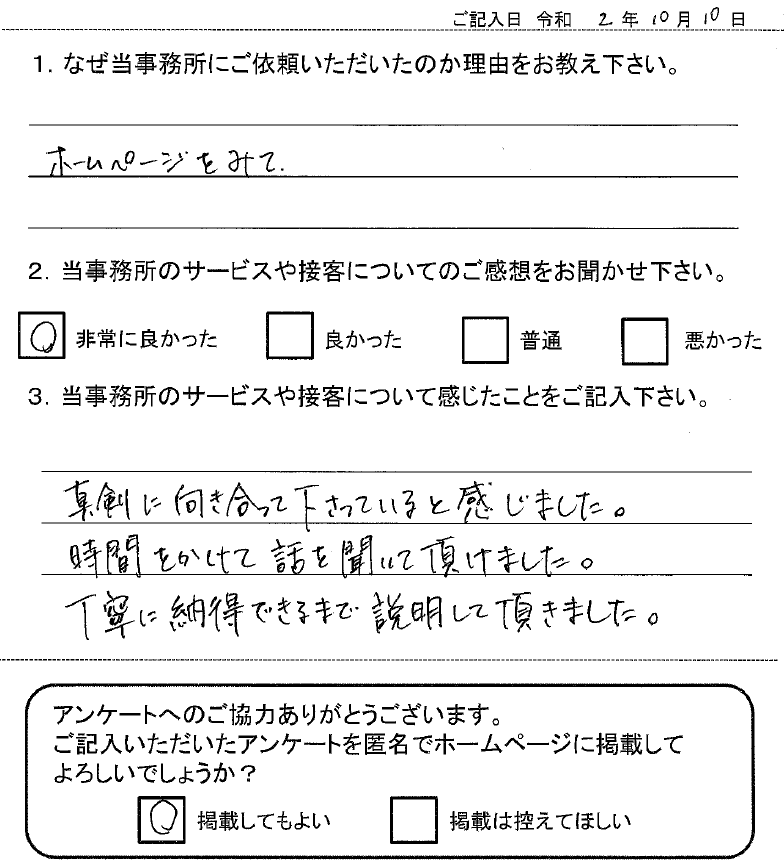 ご記入日 令和 2 年 10 月 10 日
1. なぜ当事務所にご依頼いただいたのか理由をお教え下さい。
ホームページをみて.
2. 当事務所のサービスや接客についてのご感想をお聞かせ下さい。
非常に良かった 良かった 普通 悪かった
3. 当事務所のサービスや接客について感じたことをご記入下さい。
真剣に向き合って下さっていると感じました。
時間をかけて話を聞いて頂けました。
丁寧に納得できるまで説明して頂きました。
アンケートへのご協力ありがとうございます。
ご記入いただいたアンケートを匿名でホームページに掲載して
よろしいでしょうか？
掲載してもよい 掲載は控えてほしい